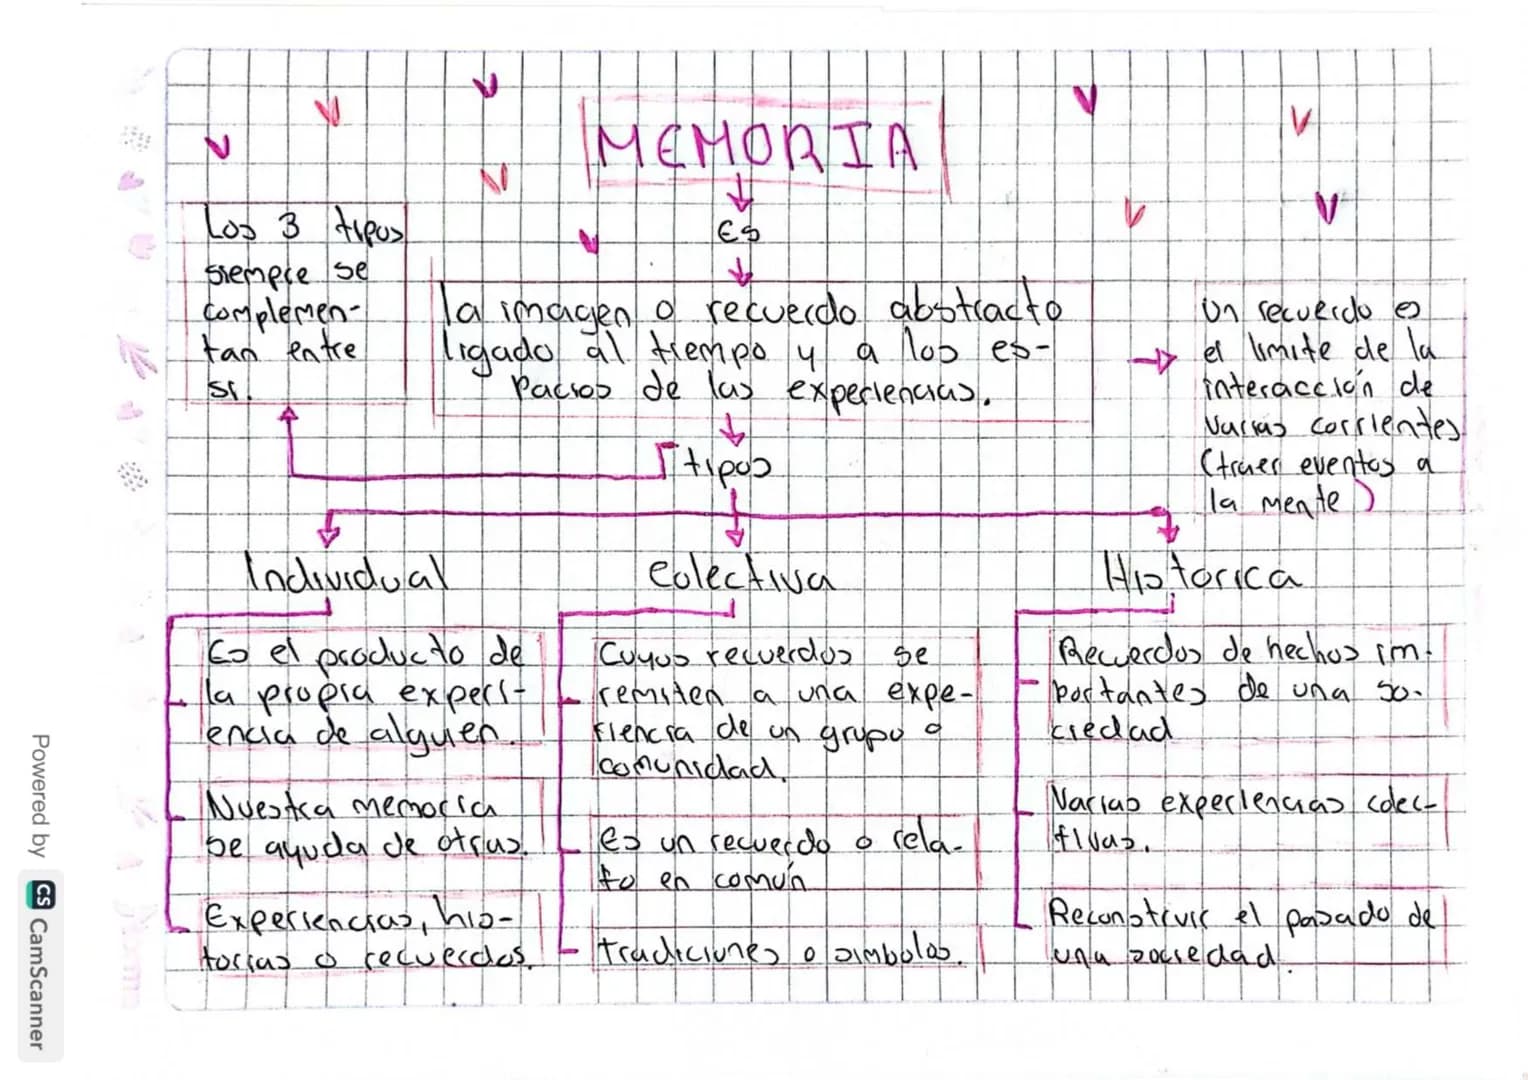 MEMORIA
Es
Los 3 tipos
siempre se
complemen-
tan entre
si.
la imagen o recuerdo abstracto
ligado al tiempo y a los es-
pacios de las experiencias.
Un recuerdo es
el limite de la
interacción de
varias corrientes
(traer eventos a
la mente)
tipos
Individual
Es el producto de
la propia experi-
encia de alguien.
Nuestra memoria
se ayuda de otras.
Experiencias, his-
torias o recuerdos.
Colectiva
Cuyos recuerdos se
remiten a una expe-
riencia de un grupo o
comunidad.
Es un recuerdo o rela-
to en común
tradiciones o simbolos.
Historica
Recuerdos de hechos im-
portantes de una so-
ciedad
Varias experiencias colec-
tivas.
Reconstruir el pasado de
una sociedad.
Powered by CS CamScanner